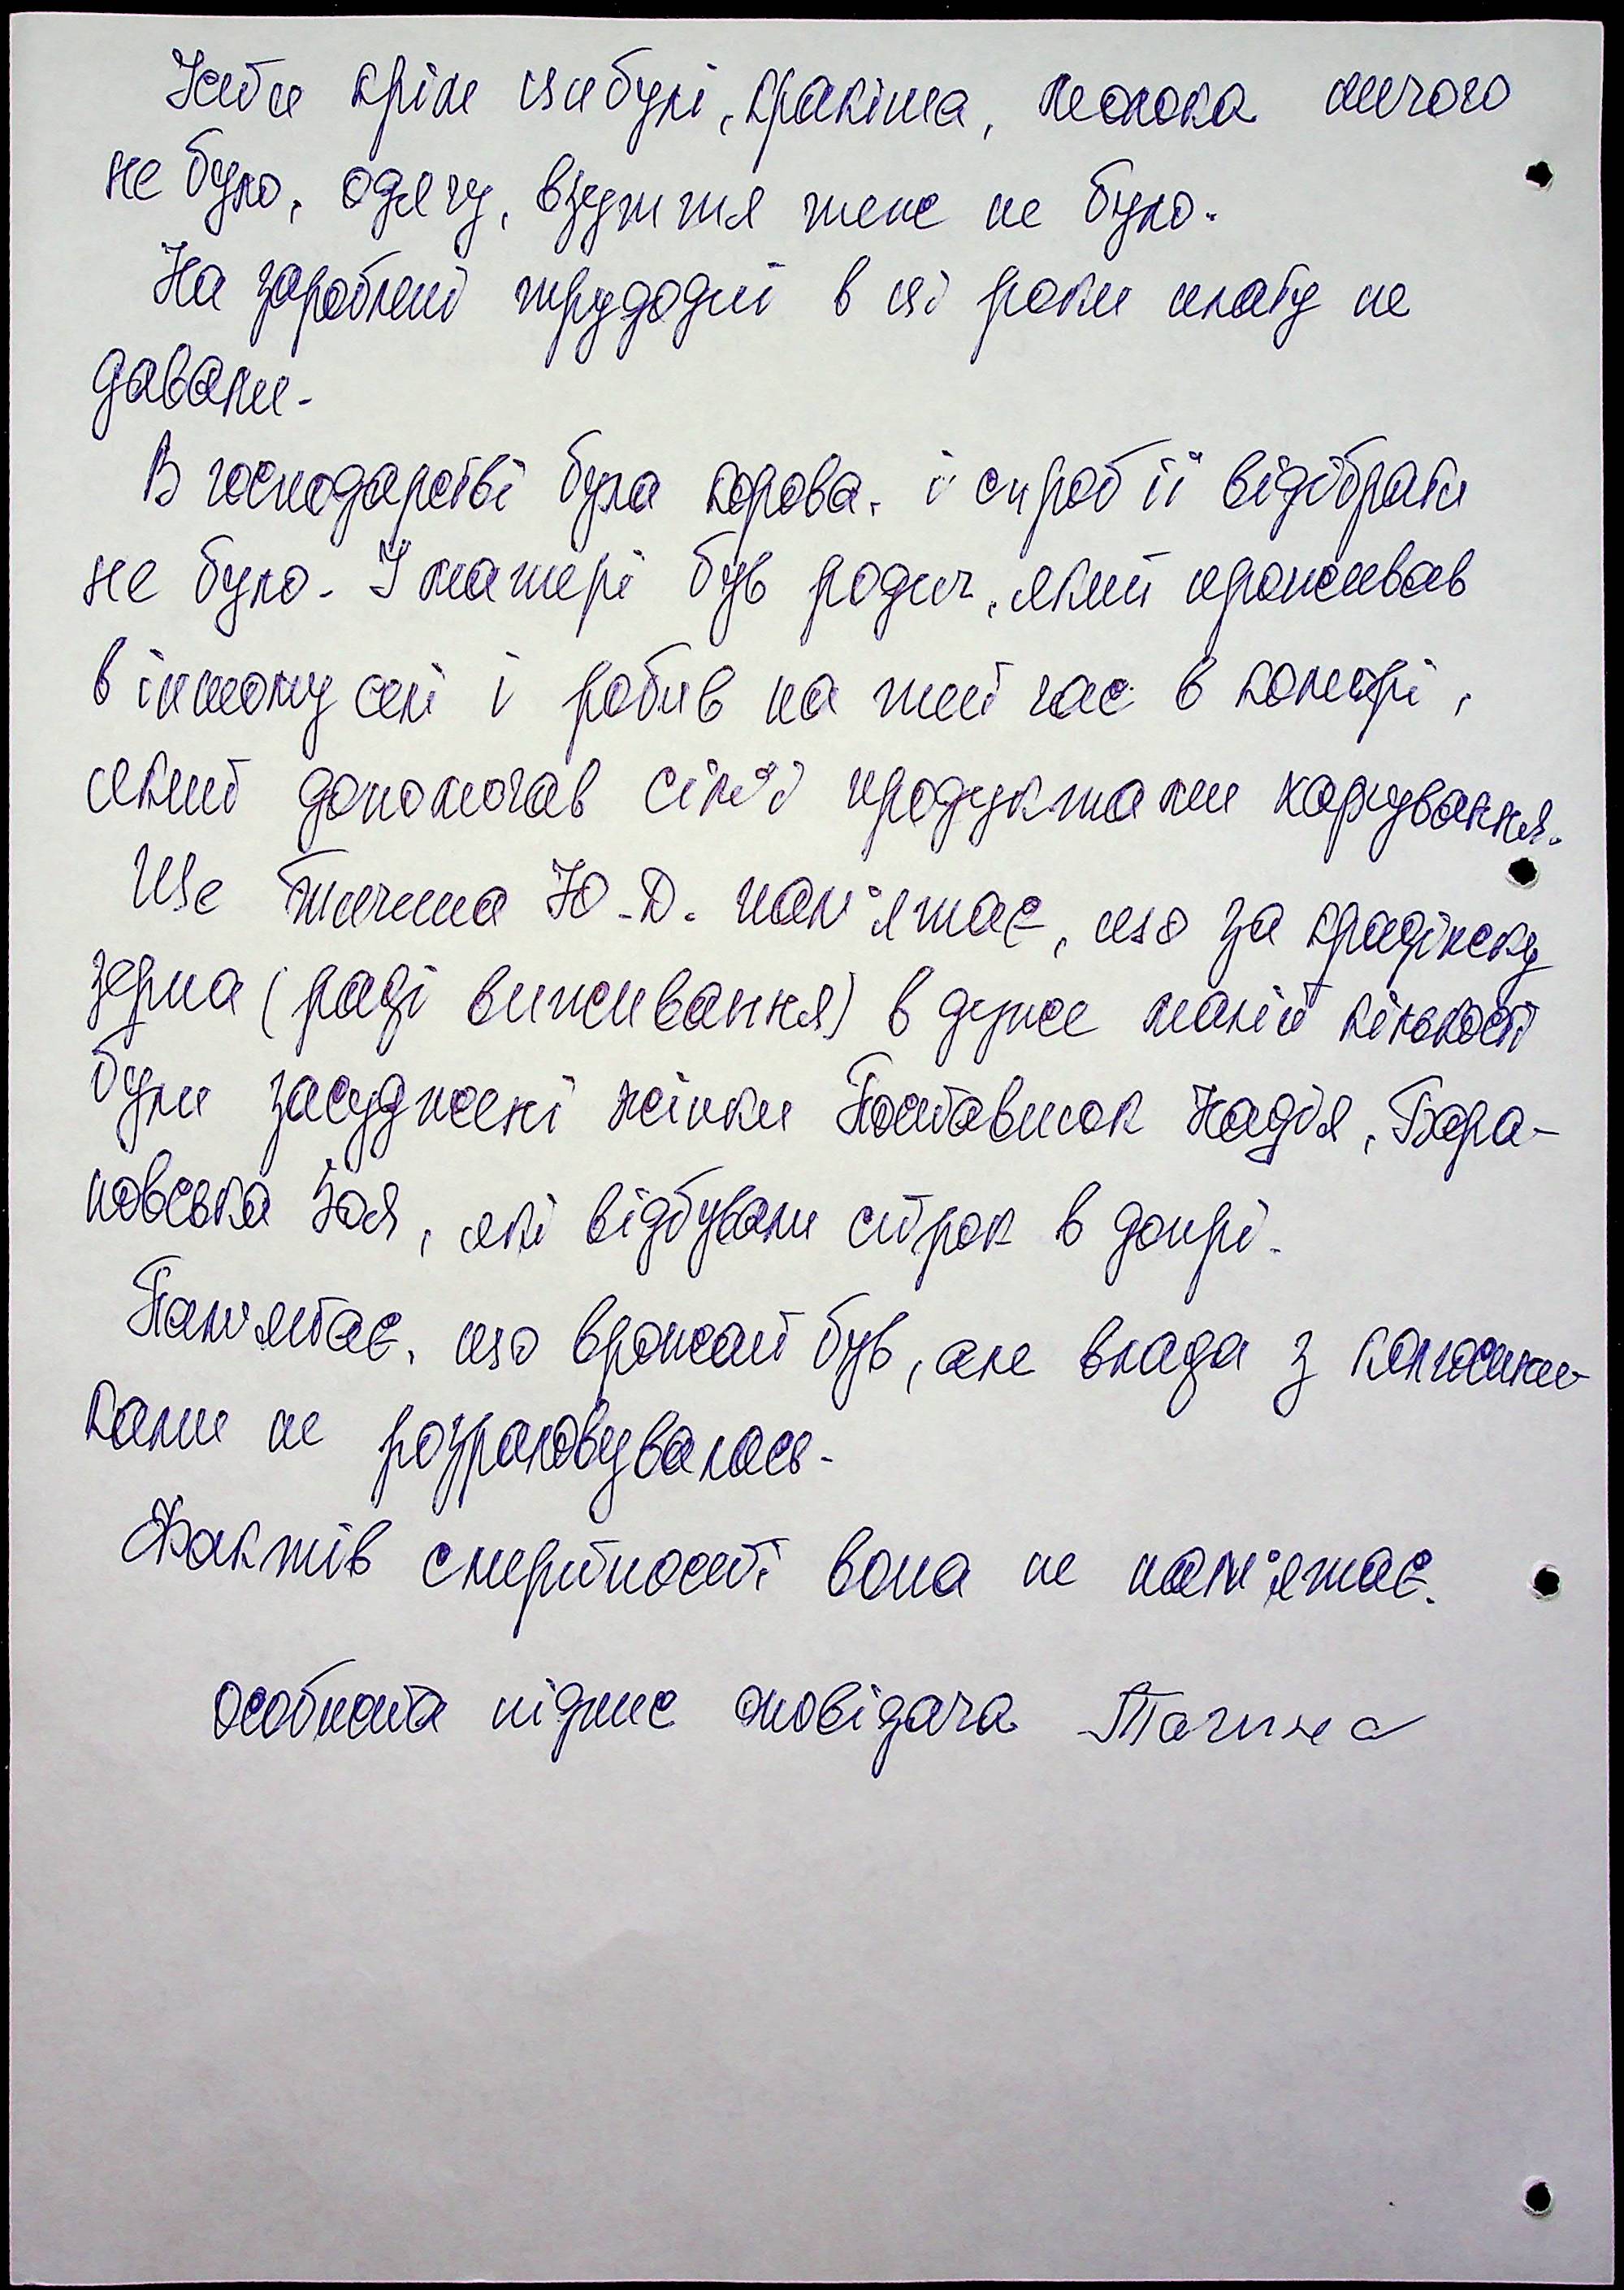 Їсти крім цибулі, кракіта, молока нічого
не було, одягу, взуття теж не було.
На зароблені трудодні в ці роки плату не
давали.
В господарстві була корова, і спроб її відібрати
не було. У матері був родич, який проживав
в іншому селі і робив на той час в коморі,
який допомогав сім'ї продуктами харчування.
Ще Тичина Ю.Д. пам'ятає, що за крадіжку
зерна (раді виживання) в дуже малій кількості
були засуджені жінки Поставнюк Надія, Бара-
новська Зоя, які відбували строк в допрі.
Пам'ятає, що врожай був, але влада з колгоспни-
ками не розраховувалась.
Фактів смертності вона не пам'ятає.
особиста підпис оповідача